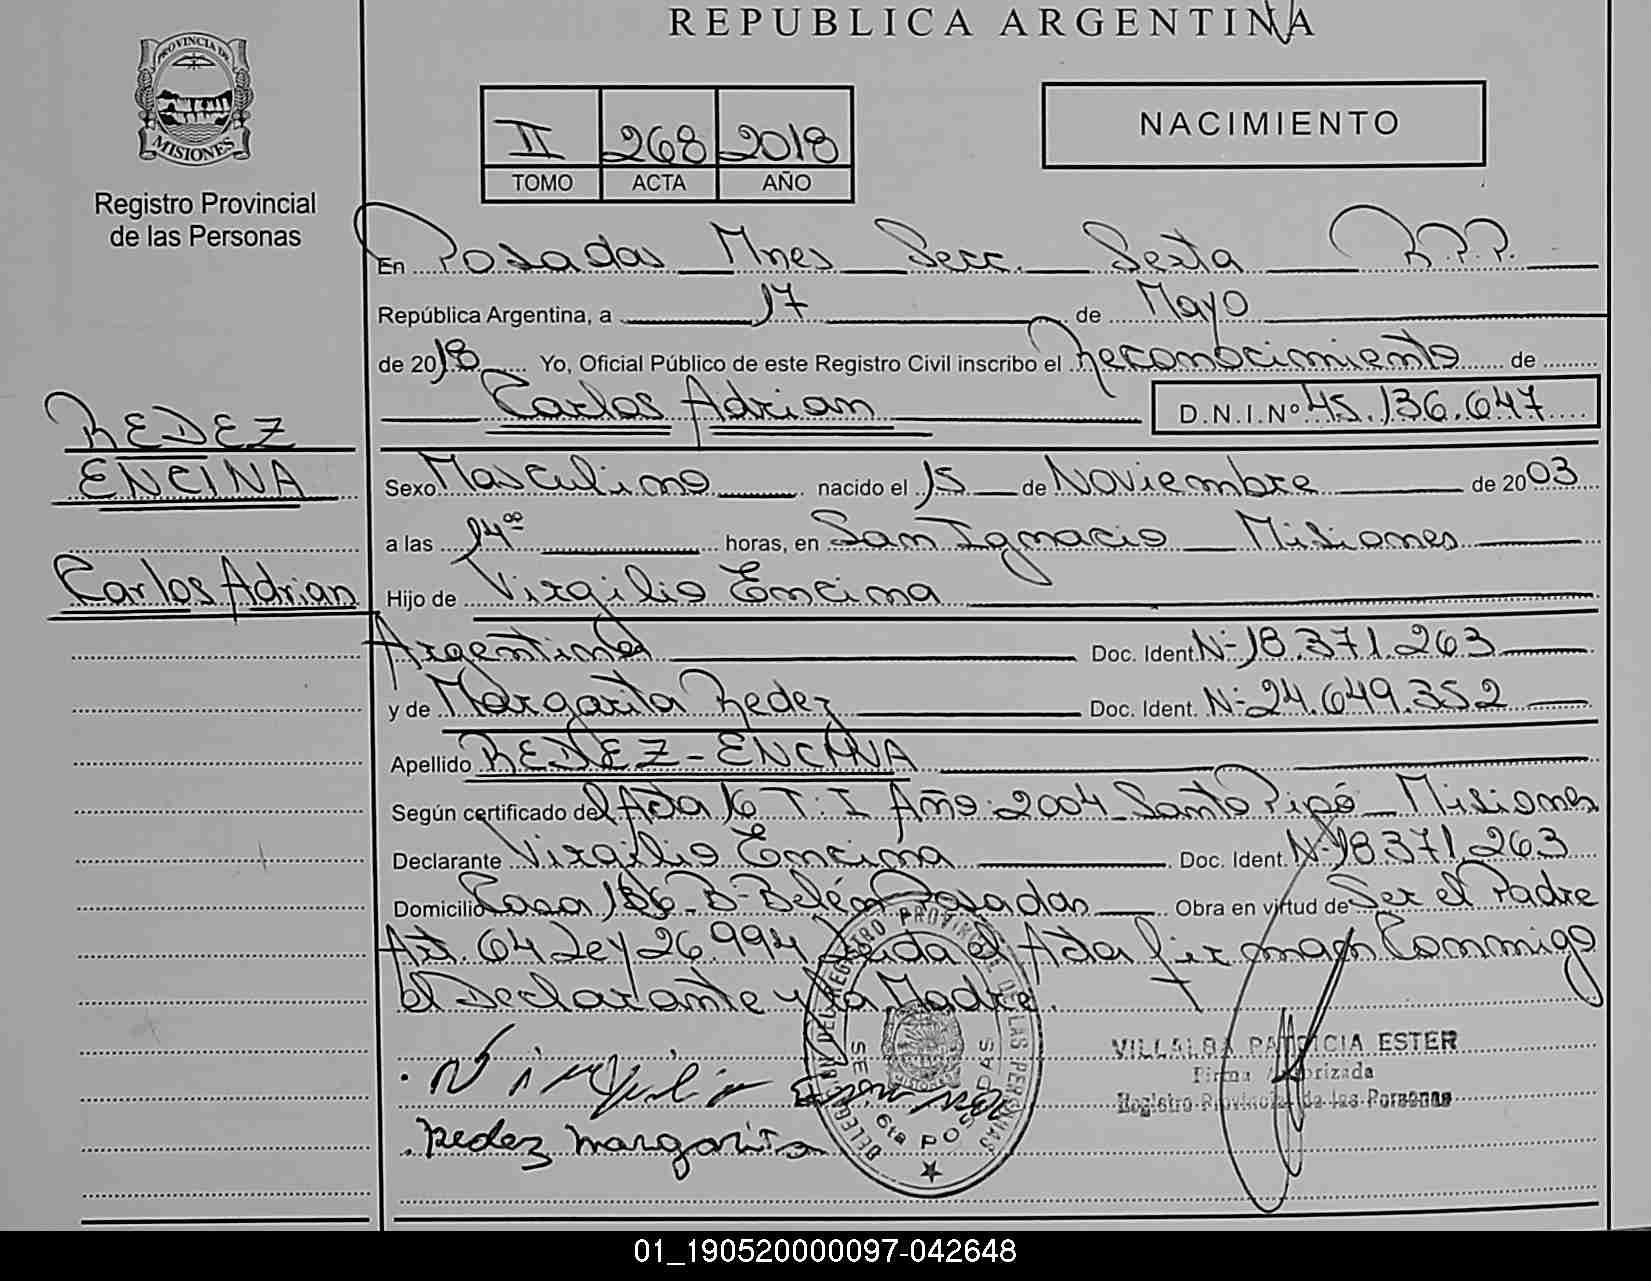 REPUBLICA ARGENTINA
PROVINCIA DE
MISIONES
Registro Provincial
de las Personas
II 268 2018
TOMO ACTA AÑO
NACIMIENTO
En Posadas Mnes Secc. Sexta R.P.P.
República Argentina, a 17 de Mayo
de 2018 Yo, Oficial Público de este Registro Civil inscribo el Reconocimiento de
Carlos Adrian D.N.I.Nº 45.136.647
REDEZ
ENCINA
Carlos Adrian
Sexo Masculino nacido el 15 de Noviembre de 2003
a las 14ºº horas, en San Ignacio Misiones
Hijo de Virgilio Encina
Argentina Doc. Ident. Nº 18.371.263
y de Margarita Redez Doc. Ident. Nº 24.649.352
Apellido REDEZ - ENCINA
Según certificado del Acta 16 T: I Año: 2004 Santo Pipó Misiones
Declarante Virgilio Encina Doc. Ident. Nº 18371.263
Domicilio Casa 186 B- Belén Posadas Obra en virtud de Ser el Padre
Art. 64 Ley 26.994 Leida el Acta firman Conmigo
el Declarante y la Madre.
Virgilio Encina
Redez Margarita
DELEGACION DEL REGISTRO PROVINCIAL DE LAS PERSONAS
SEC. 6ta POSADAS
VILLALBA PATRICIA ESTER
Firma Autorizada
Registro Provincial de las Personas
01_190520000097-042648